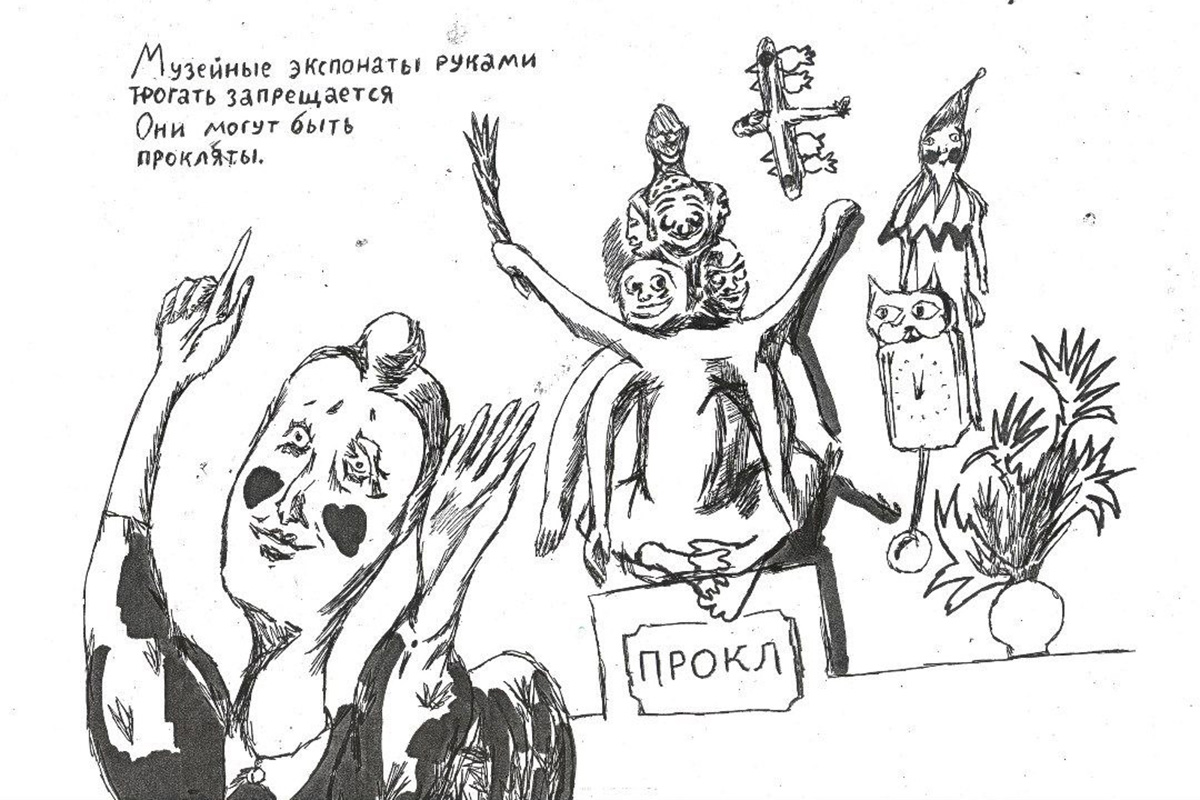 Музейные экспонаты руками
трогать запрещается
Они могут быть
прокляты.
ПРОКЛ